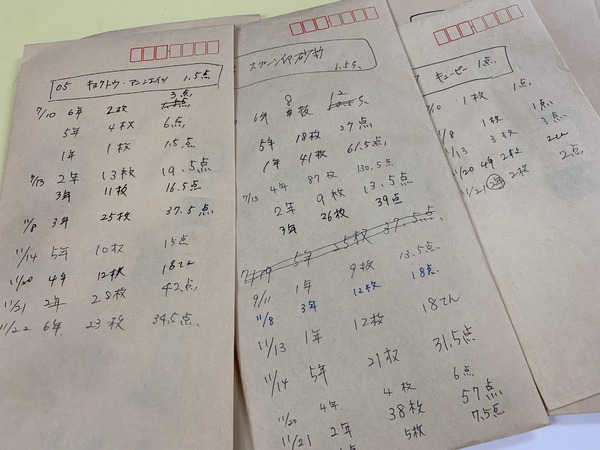 05 キョクトウ・アソシエイツ 1.5点
3点
7/10 6年 2枚
5年 4枚 6点
1年 1枚 1.5点
7/13 2年 13枚 19.5点
3年 11枚 16.5点
11/8 3年 25枚 37.5点
11/14 5年 10枚 15点
11/20 4年 12枚 18てん
11/21 2年 28枚 42点
11/22 6年 23枚 34.5点
スプーン印砂糖 1.5点
6年 8枚 12点
5年 18枚 27点
1年 41枚 61.5点
7/13 4年 87枚 130.5点
2年 9枚 13.5点
3年 26枚 39点
5年 25枚 37.5点
9/11 1年 9枚 13.5点
11/8 3年 12枚 18点
11/13 1年 12枚 18てん
11/14 5年 21枚 31.5点
11/20 4年 4枚 6点
11/21 2年 38枚 57点
5枚 7.5点
キューピー 1点
1枚 1点
1枚 1点
3枚 3点
11/20 4年 2枚 2てん
11/21 2年 2枚 2点